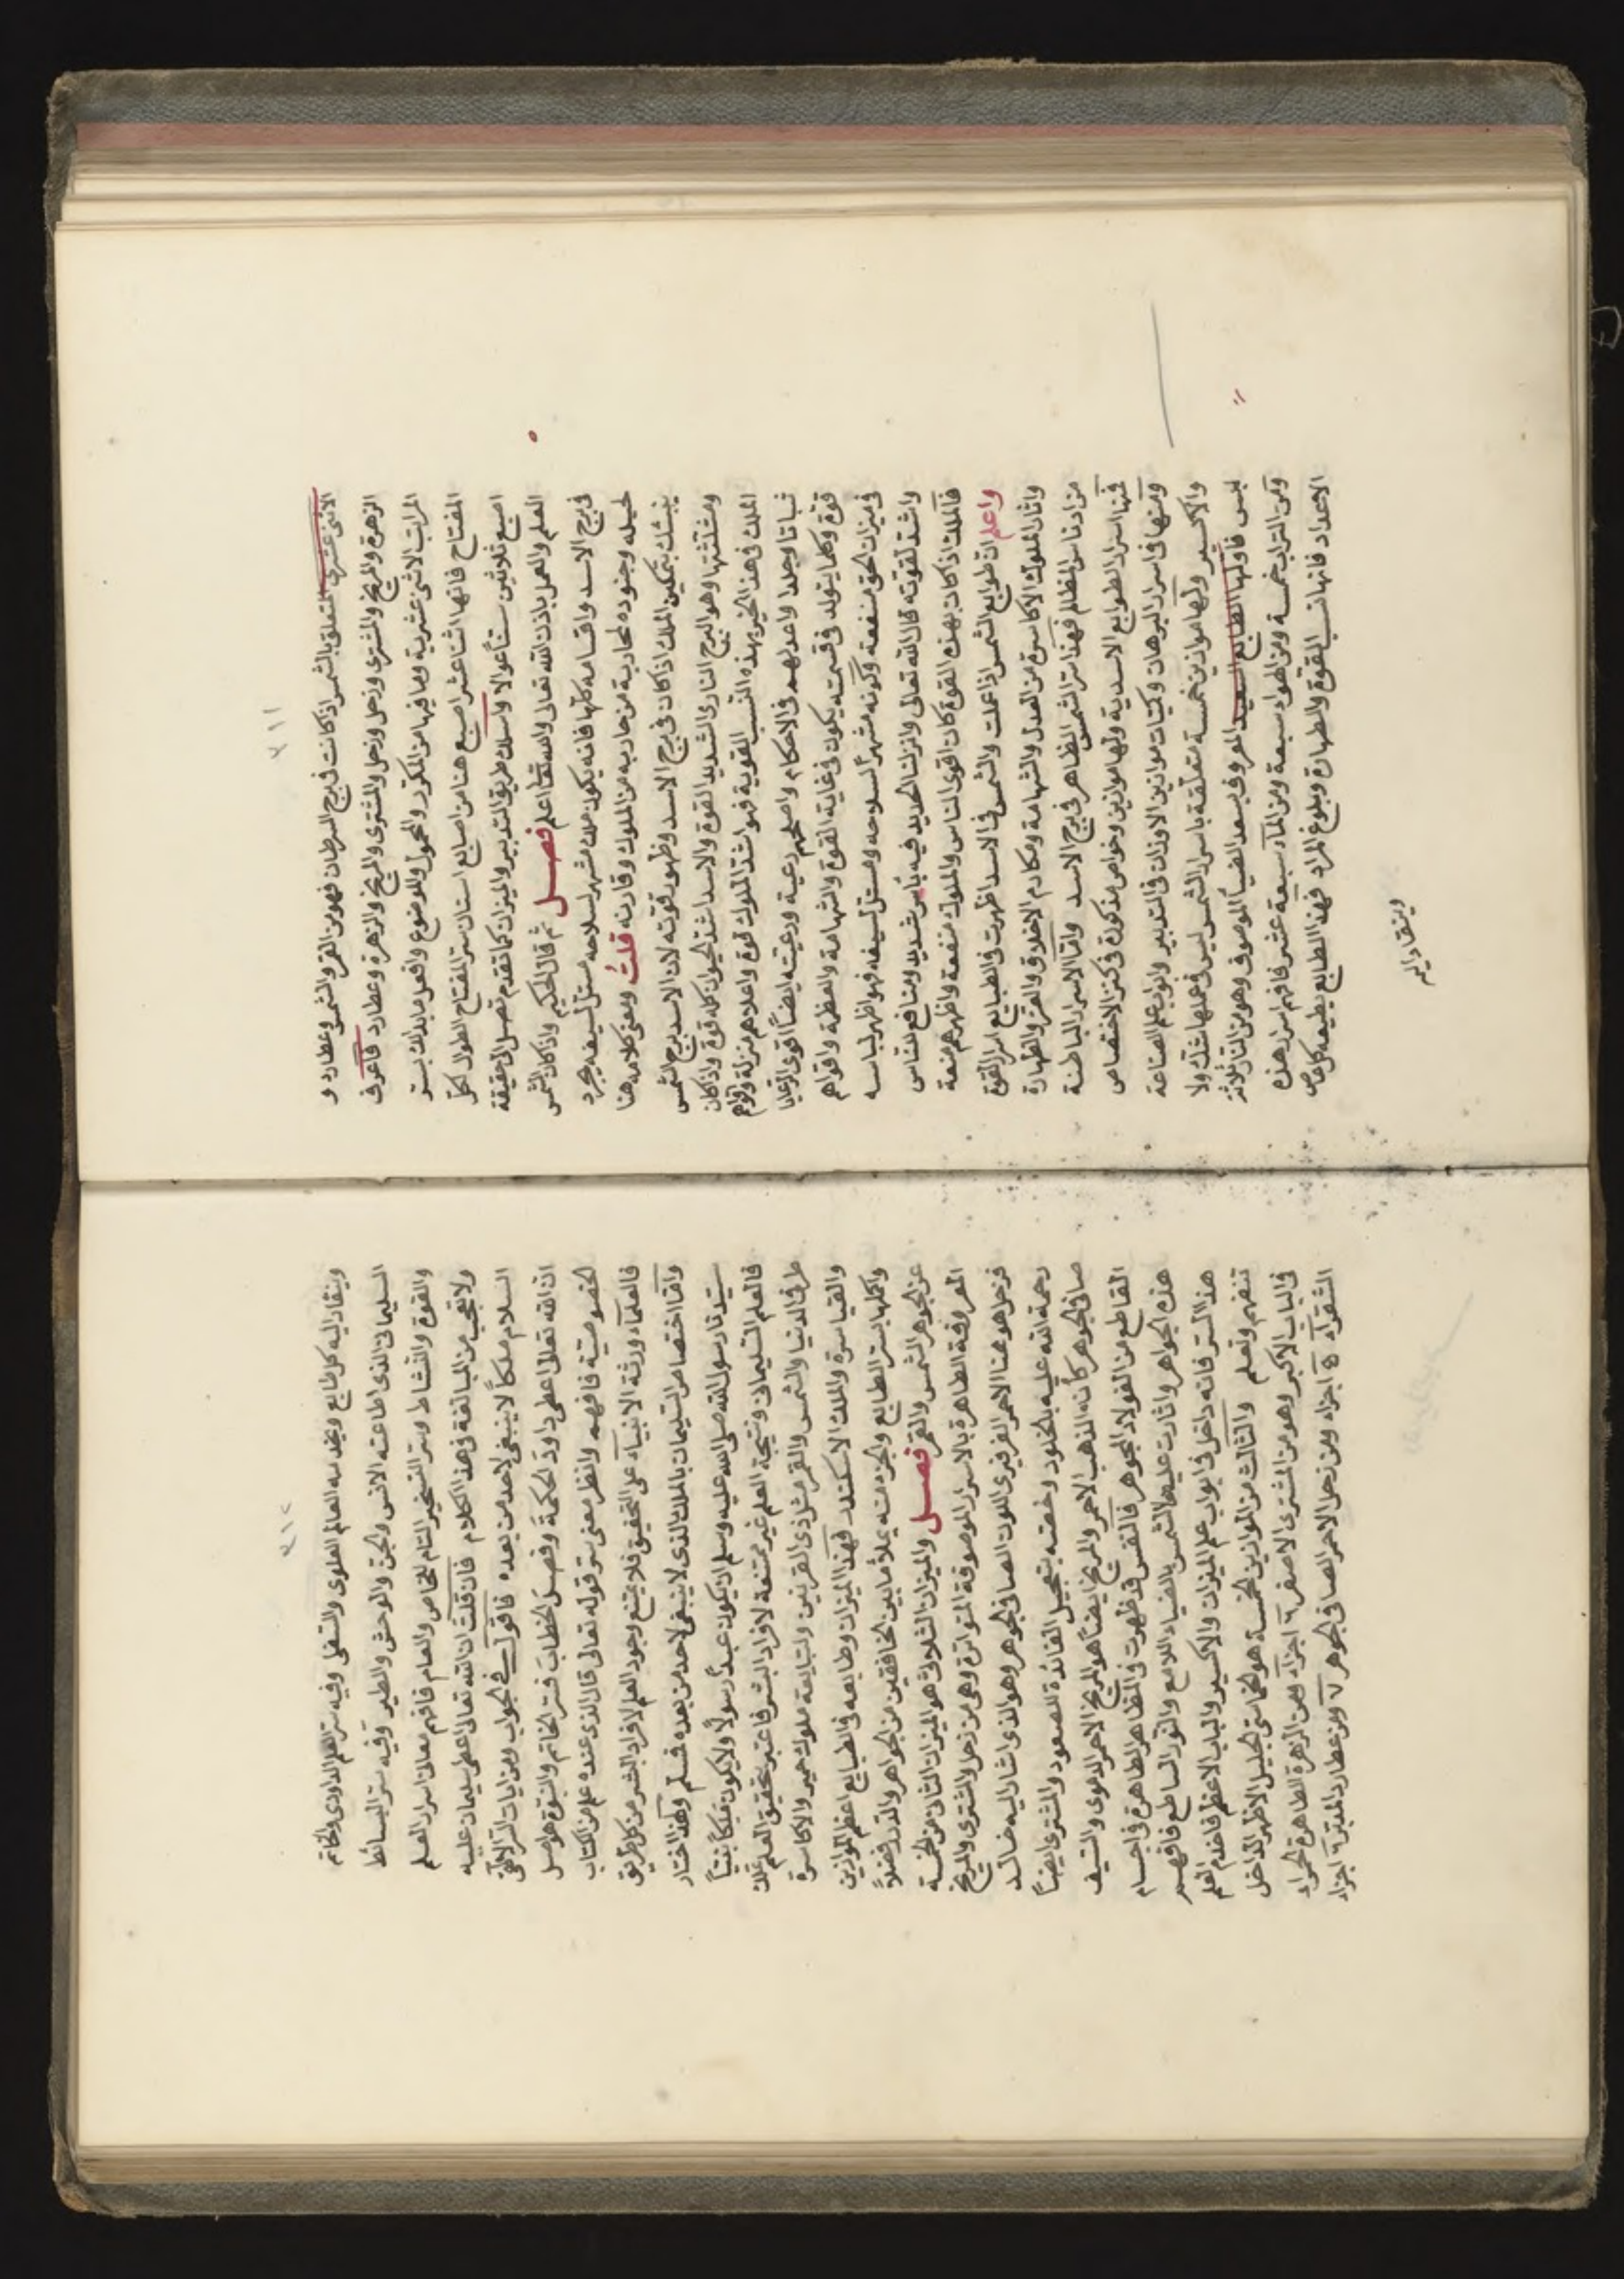 ٢١١
الاثنى عشرى المتعلق بالشمس اذ كانت فى برج السرطان فهو من القمر والشمس وعطارد و
الزهرة والمريخ والمشترى وزحل وزحل والمشترى والمريخ والزهرة وعطارد فاعرف
المراتب الاثنى عشرية وما فيها من المكرر والمحمول والموضوع وافعل ما بدا لك بستر
المفتاح فانها اثنا عشر اصبع هنا من اصابع استان ستر المفتاح الطول لكل
اصبع ثلاثين ستا عولا واسلك طريق التدبير والميزان كما تقدم تصل الى حقيقة
العلم والعمل باذن الله تعالى والله تعالى اعلم فصل ثم قال الحكيم واذا كان الشمس
فى برج الاسد واقسامه كلها فانه يكون ملك مشهر لسلاحه مستل لسيفه مجرد
لخيله وجنوده لمحاربة من حاربه من الملوك وقارنه قلت ومعنى كلامه هنا
ينبئك بتمكين الملك اذا كان فى برج الاسد وظهور قوته لان الاسد برج الشمس
ومثلثتها وهو البرج النارى الشديد القوة والاسد اشد الحيوان كله قوة واذا كان
الملك فى هذا الحيز بهذه النسب القوية فهو اشد الملوك قوة واعلاهم منزلة واقواهم
ثباتا وجلدا واعدلهم فى الاحكام واصلحهم رعية ورعيته ايضا اقوى الرعايا
قوة وكلما يتولد فى قسمته يكون فى غاية القوة والشهامة والعظمة واقواهم
فى ميزان الحق منفعة وكونه مشهرا لسلاحه ومستل لسيفه فهو اظهر لباسه
واشد لقوته قال الله تعالى وانزلنا الحديد فيه بأس شديد ومنافع للناس
فالملك اذا كان بهذه القوة كان اقوى الناس والملوك منفعة واظهرهم منعة
واعلم ان طوابع الشمس اذا عملت والشمس فى الاسد اظهرت فى الطبايع اسرار القوة
واثار الملوك الاكاسرة من العدل والشهامة ومكارم الاخلاق والعز والطهارة
من ادناس المظالم فهذا ستر الشمس الظاهر فى برج الاسد واما الاسرار الباطنة
فمنها اسرار الطوابع الاسدية ولها موازين وخواص مذكورة فى كنز الاختصاص
ومنها فى اسرار البرهان وكميات موازين الاوزان فى التدبير وابواب علم الصناعة
والاكسير ولها موازين خمسة متعلقة باسرار الشمس ليس فى عملها شك ولا
لبس فاولها الطابع السعيد المعروف بسعد الضيا الموصوف وهو من النار ثلاثة
ومن التراب خمسة ومن الهواء سبعة ومن الماء سبعة عشر فافهم اسرار هذه
الاعداد فانها نسب القوة والطهارة وبلوغ المراد فهذا الطابع يطيعه كل خاص
وينقاد اليه
٢١٢
وينقاد اليه كل طابع ويخدمه العالم العلوى والسفلى وفيه ستر العلم الداودى والخاتم
السليمانى الذى اطاعته الانس والجن والوحش والطير وفيه ستر البسائط
والقوة والنشاط وستر التسخير التام للخاص والعام فافهم معانى اسرار العلم
ولا تعجب من المبالغة فى هذا الكلام فان قلت ان الله تعالى اعطى سليمان عليه
السلام ملكا لا ينبغى لاحد من بعده فاقول فى الجواب ومن ايات السر الالهى
ان الله تعالى اعطى داود الحكمة وفصل الخطاب فستر الخاتم والنبوة هو اصل
الخصوصية فافهم وانظر معنى ستر قوله تعالى قال الذى عنده علم من الكتاب
فالعلماء ورثة الانبياء على التحقيق فلا يمتنع وجود العلم لافراد البشر من كل طريق
واما اختصاص سليمان بالملك الذى لا ينبغى لاحد من بعده فسلم وهكذا اختار
سيدنا رسول الله صلى الله عليه وسلم ان يكون عبدا رسولا ولا يكون ملكا نبيا
فالعلم السليمانى ونتيجة العلم غير ممتنعة لافراد البشر فاعتبر بتحقيق العلم ملك
طرفى الدنيا والشمس والقمر مثل ذى القرنين ولتبابعة ملوك حمير والاكاسرة
والقياسرة والملك الاسكندر فهذا الميزان وطابعه فى الطبايع اعظم الموازين
واكملها بستر الطابع والجزء منه يملأ ما بين الخافقين من الجواهر والدرر فضلا
عن الجوهر الشمس والقمر فصل والميزان الثلاثى هو الميزان الثانى من الخمسة
المعروفة الطاهرة بالاسرار الموصوفة المتواترة وهى من زحل والمشترى والمريخ
فزحل هو هنا الاحمر الفرفيرى اللون الصافى الجوهر وهو الذى اشار اليه خالد
رحمة الله عليه بالخلود وخصته بتعجيل الفائدة للصعود والمشترى ايضا
صافى الجوهر كأنه الذهب الاحمر والمريخ ايضا هو المريخ الاحمر الدموى والسيف
القاطع من الفولاد الجوهر فالنفس قد ظهرت فى المظاهر الطاهرة فى اجسام
هذه الجواهر واثارت عليها الشمس بالضياء اللامع والنور الساطع فافهم
هذا الستر فانه داخل فى ابواب علم الميزان والاكسير والباب الاعظم فاخدم العلم
تنفهم وتعلم والثالث من الموازين الخمسة هو الخماسى الجليل الاظهر الداخل
فى الباب الاكبر وهو من المشترى الاصفر ٦ اجزاء ومن الزهرة الطاهرة الحمراء
الشقراء ٥ اجزاء ومن زحل الاحمر الصافى الجوهر ٧ ومن عطارد المدبر ٦ اجزاء